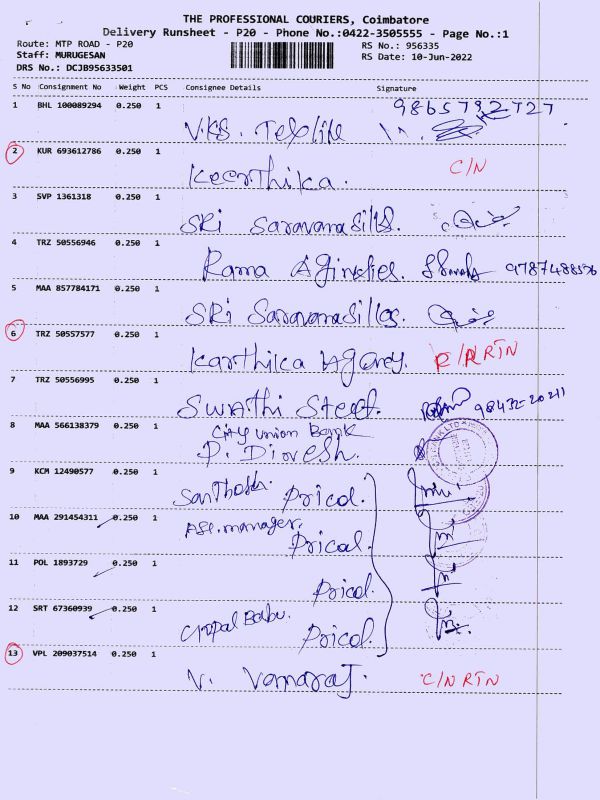 THE PROFESSIONAL COURIERS, Coimbatore
Delivery Runsheet - P20 - Phone No.:0422-3505555 - Page No.:1
Route: MTP ROAD - P20
RS No.: 956335
Staff: MURUGESAN
RS Date: 10-Jun-2022
DRS No.: DCJB95633501
S No Consignment No Weight PCS Consignee Details Signature
1 BHL 100089294 0.250 1
V.KS.
2 KUR 693612786 0.250 1 C/N
Keerthika.
3 SVP 1361318 0.250 1
SRI Saravana Silks.
4 TRZ 50556946 0.250 1
Rama
5 MAA 857784171 0.250 1
SRI Saravana
6 TRZ 50557577 0.250 1
Karthika Agency. R/R RTN
7 TRZ 50556995 0.250 1
Swathi Steel. 98432-20211
8 MAA 566138379 0.250 1
City Union Bank
9 KCM 12490577 0.250 1
Pricol.
10 MAA 291454311 0.250 1
Asst.manager. Pricol.
11 POL 1893729 0.250 1
Pricol.
12 SRT 67360939 0.250 1
Gopal Babu. Pricol.
13 VPL 209037514 0.250 1
V. Vamaraj. C/N RTN